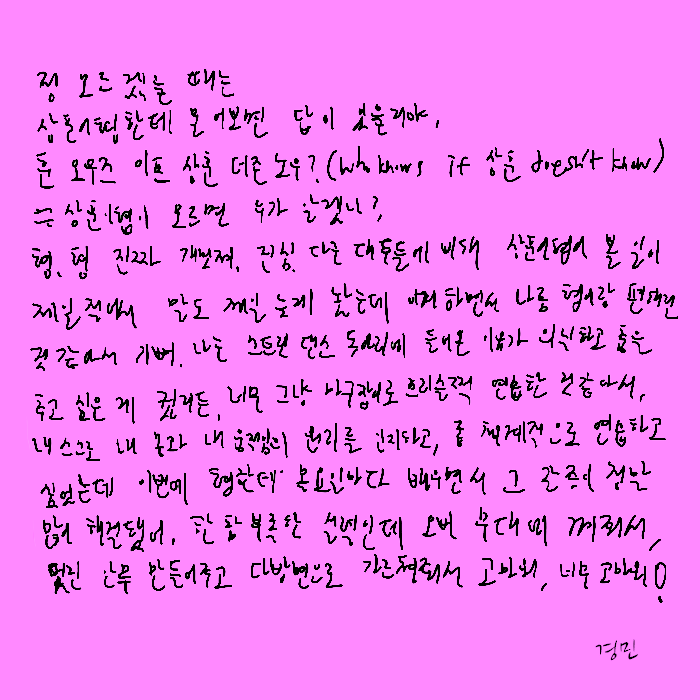 정 모르겠을 때는
상훈이형한테 물어보면 답이 있을거야,
훈 오우즈 이프 상훈 더즌노우? (who knows if 상훈 doesn't know)
= 상훈이형이 모르면 누가 알겠니?
형, 형 진짜 개멋져, 진심. 다른 대학들에 비해 상훈이형이 볼 일이
제일 적어서 말도 제일 늦게 놨는데 야자 하면서 나름 형이랑 편해진
것 같아서 기뻐. 나는 스트릿 댄스 동아리에 들어온 이유가 의식하고 춤을
추고 싶은 게 컸거든, 너무 그냥 마구잡이로 프리스타일 연습한 것같아서,
내 스스로 내 몸과 내 움직임의 원리를 인지하고, 좀 체계적으로 연습하고
싶었는데 이번에 형한테 목요일마다 배우면서 그 갈증이 정말
많이 해결됐어, 한참 부족한 실력인데 오버 무대에 껴줘서,
멋진 안무 만들어주고 다방면으로 가르쳐줘서 고마워, 너무 고마워!
경민